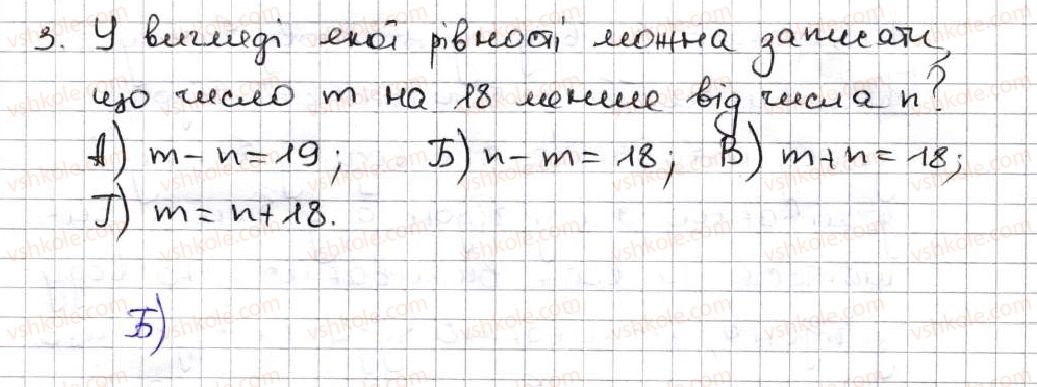 3. У вигляді якої рівності можна записати,
що число m на 18 менше від числа n?
А) m - n = 19; Б) n - m = 18; В) m + n = 18;
Г) m = n + 18.
Б)